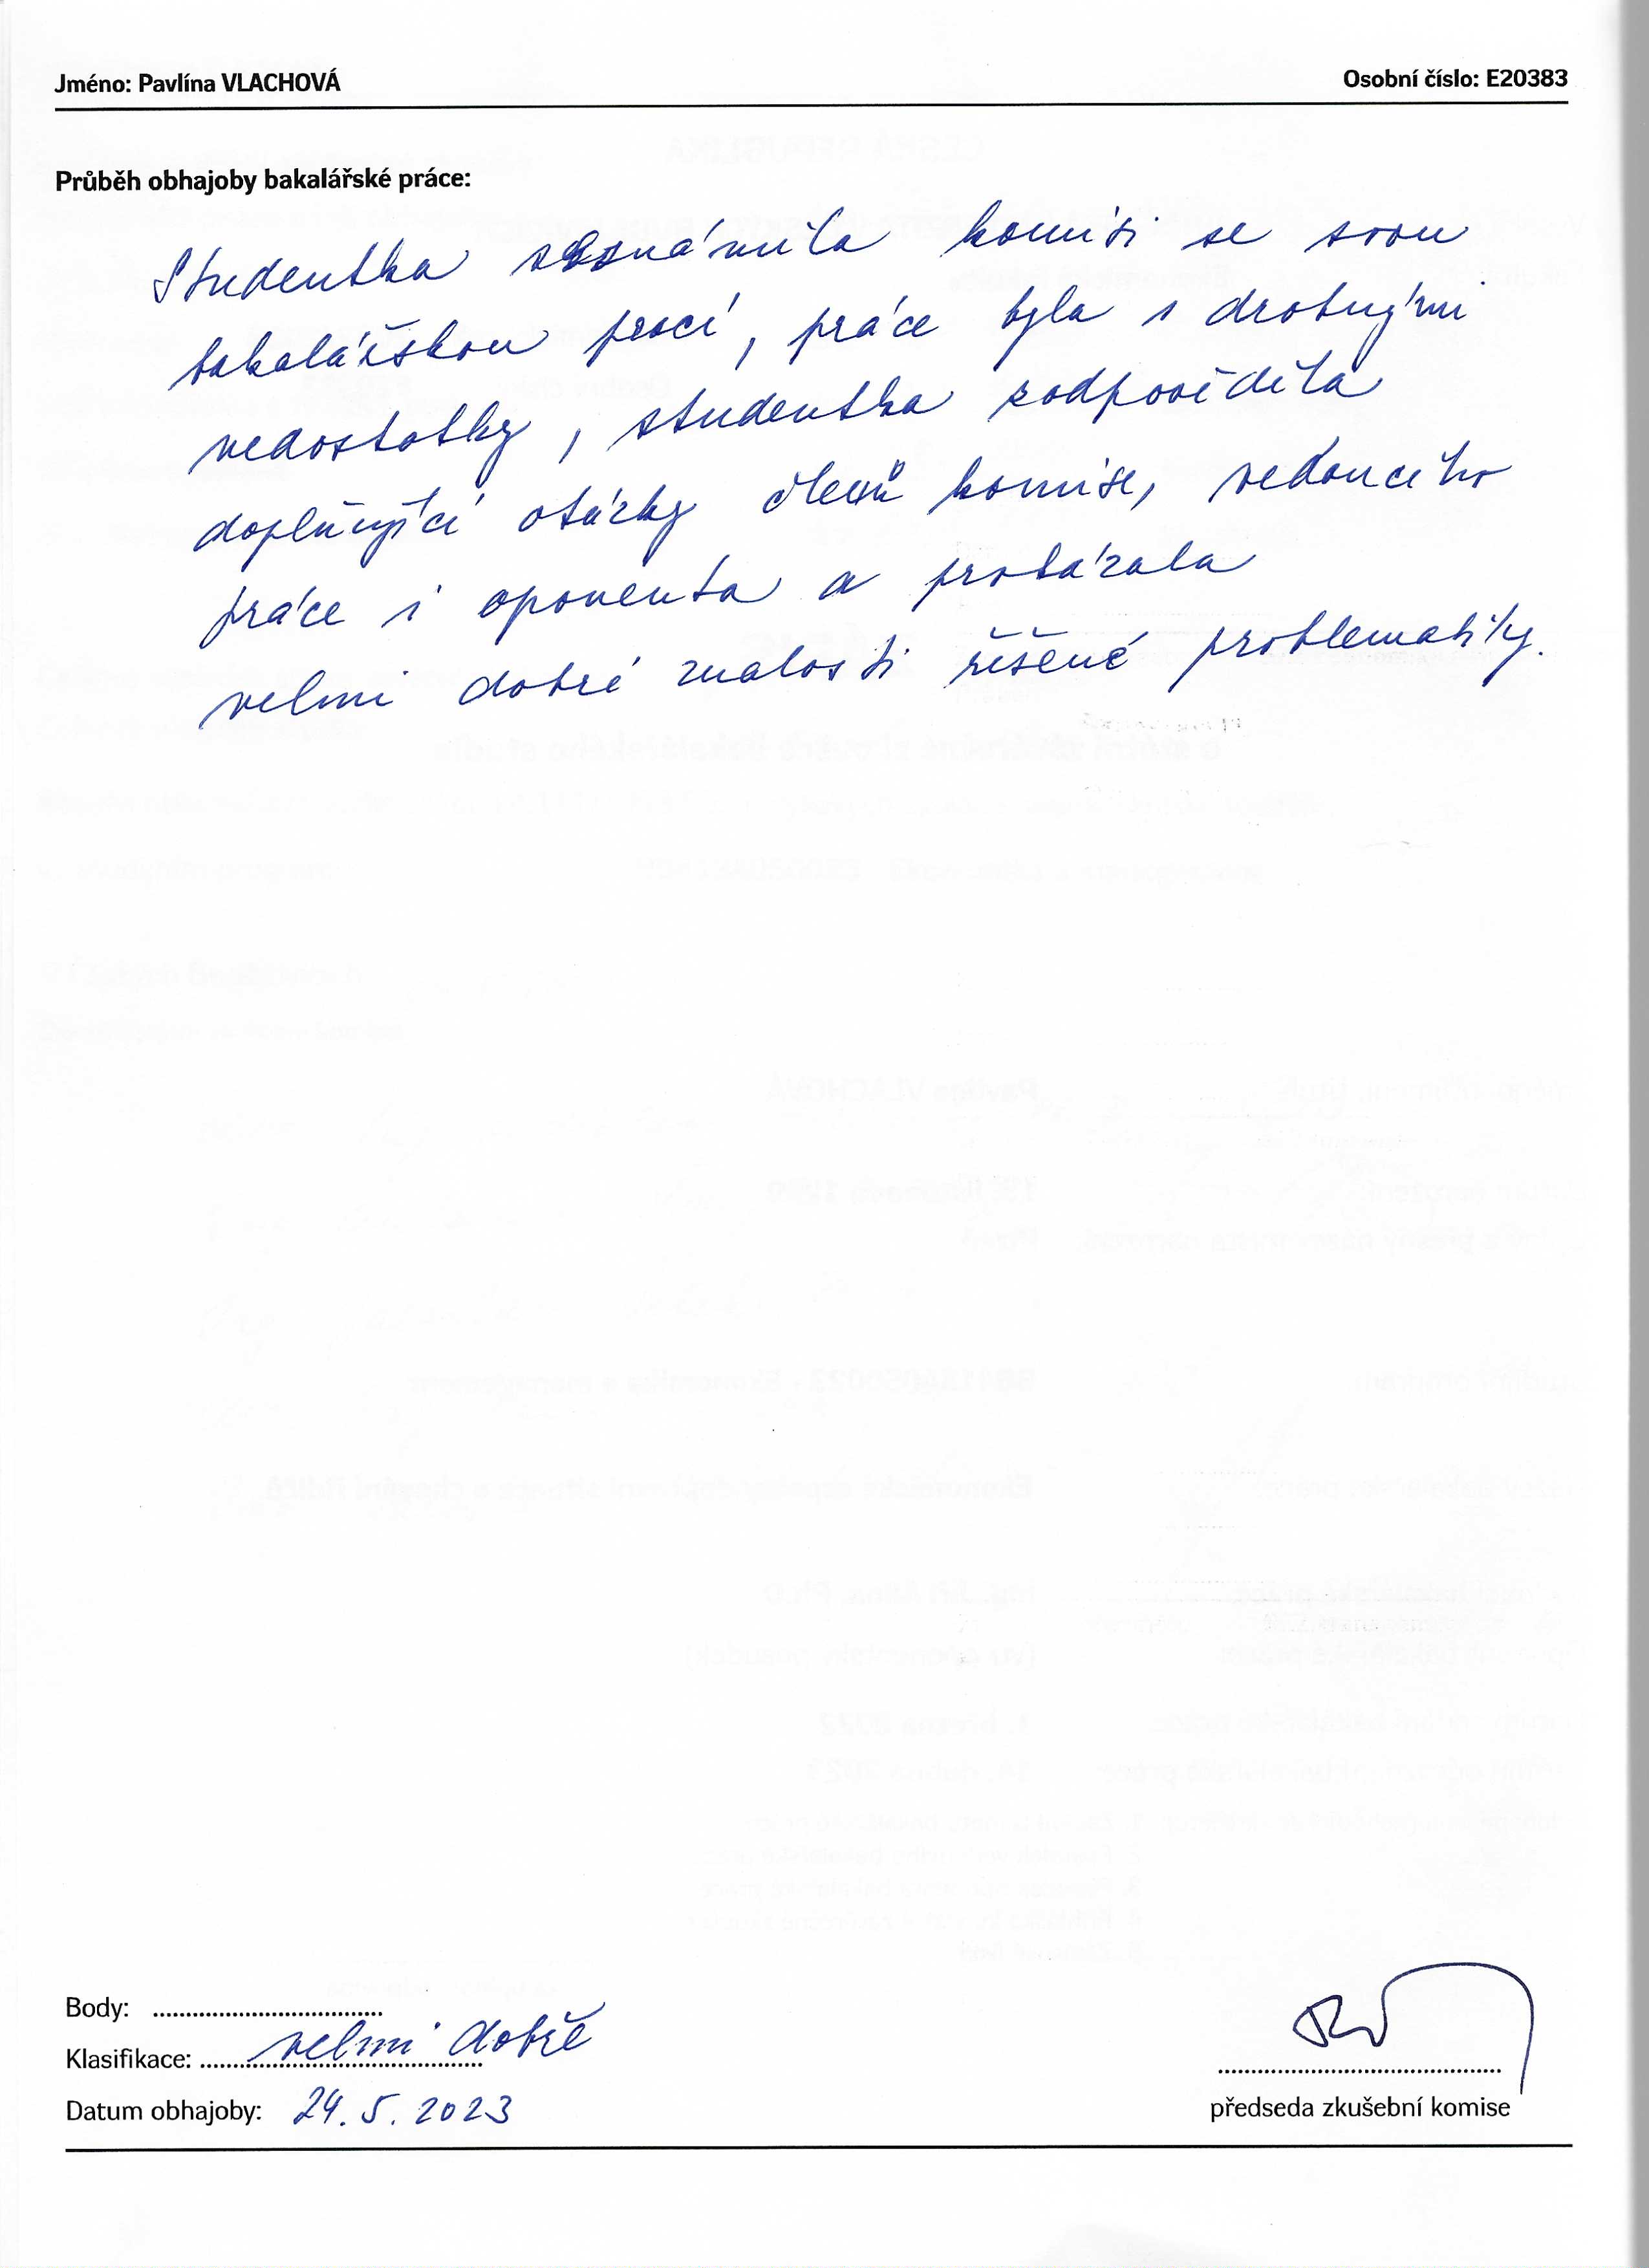 Jméno: Pavlína VLACHOVÁ Osobní číslo: E20383
Průběh obhajoby bakalářské práce:
Studentka seznámila komisi se svou
bakalářskou prací, práce byla s drobnými
nedostatky, studentka zodpověděla
doplňující otázky členů komise, vedoucího
práce i oponenta a prokázala
velmi dobré znalosti řešené problematiky.
Body:
Klasifikace: velmi dobře
Datum obhajoby: 24.5.2023
předseda zkušební komise